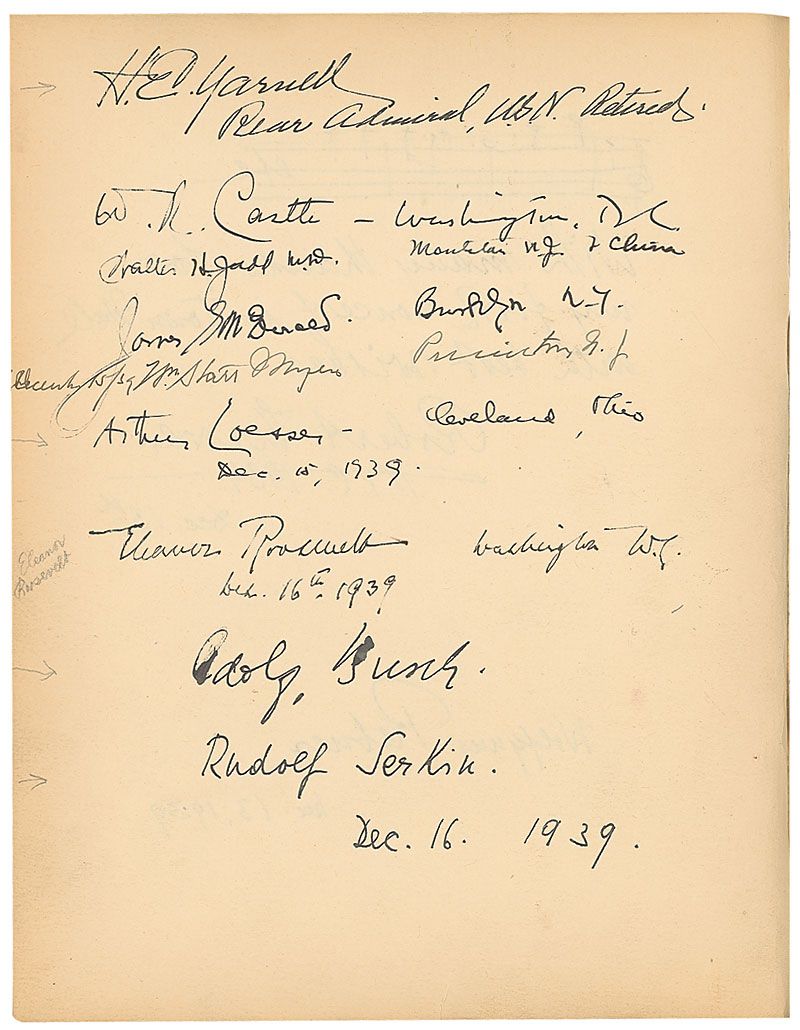 H.E. Yarnell
Rear Admiral, U.S.N. Retired.
W. R. Castle – Washington, D.C.
Walter H. Judd M.D. Montclair N.J. & China
James G. McDonald. Brooklyn N-Y.
December 15/39 Wm Starr Myers Princeton, N.J.
Arthur Loesser – Cleveland, Ohio
Dec. 15, 1939.
Eleanor Roosevelt Washington D.C.
Dec. 16th. 1939
Eleanor
Roosevelt
Adolf Busch.
Rudolf Serkin.
Dec. 16. 1939.